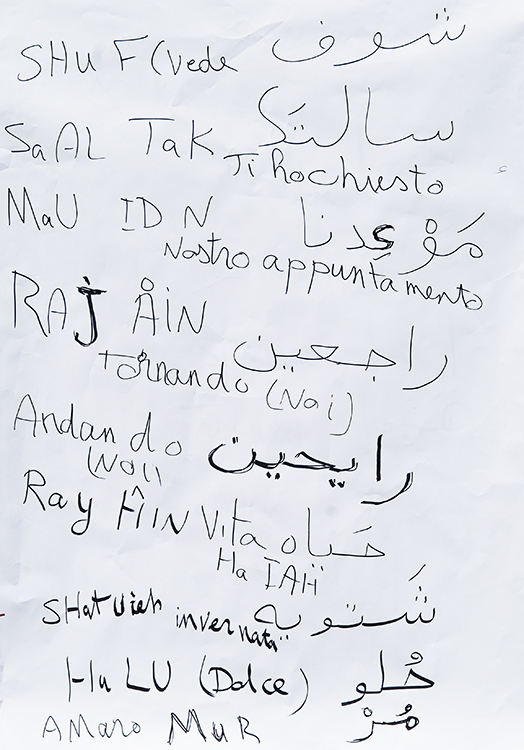 SHUF (vede شوف
SaAL TaK سالتَك
Ti Ho chiesto
MaU ID N مَوْعِدنا
Nostro appuntamento
RAJ ÅIN راجعين
tornando (Noi)
Andando رايحين
(Noi)
Ray ĤIN Vita حَياه
Ha IAH
SHatUieh invernata شَتويه
Ha LU (Dolce) حُلو
AMaro MUR مُرْ